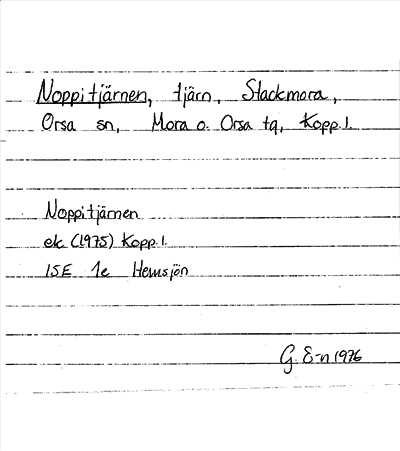 Noppitjärnen, tjärn, Stackmora,
Orsa sn, Mora o. Orsa tg, Kopp. l.
Noppitjärnen
ek (1975) Kopp. l.
15E 1e Hemsjön
G. E-n 1976